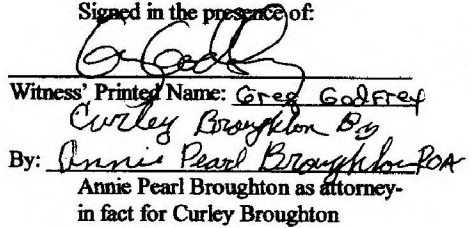 Signed in the presence of:
Witness' Printed Name: Greg Godfrey
Curley Broughton By
By: Annie Pearl Broughton POA
Annie Pearl Broughton as attorney-
in fact for Curley Broughton